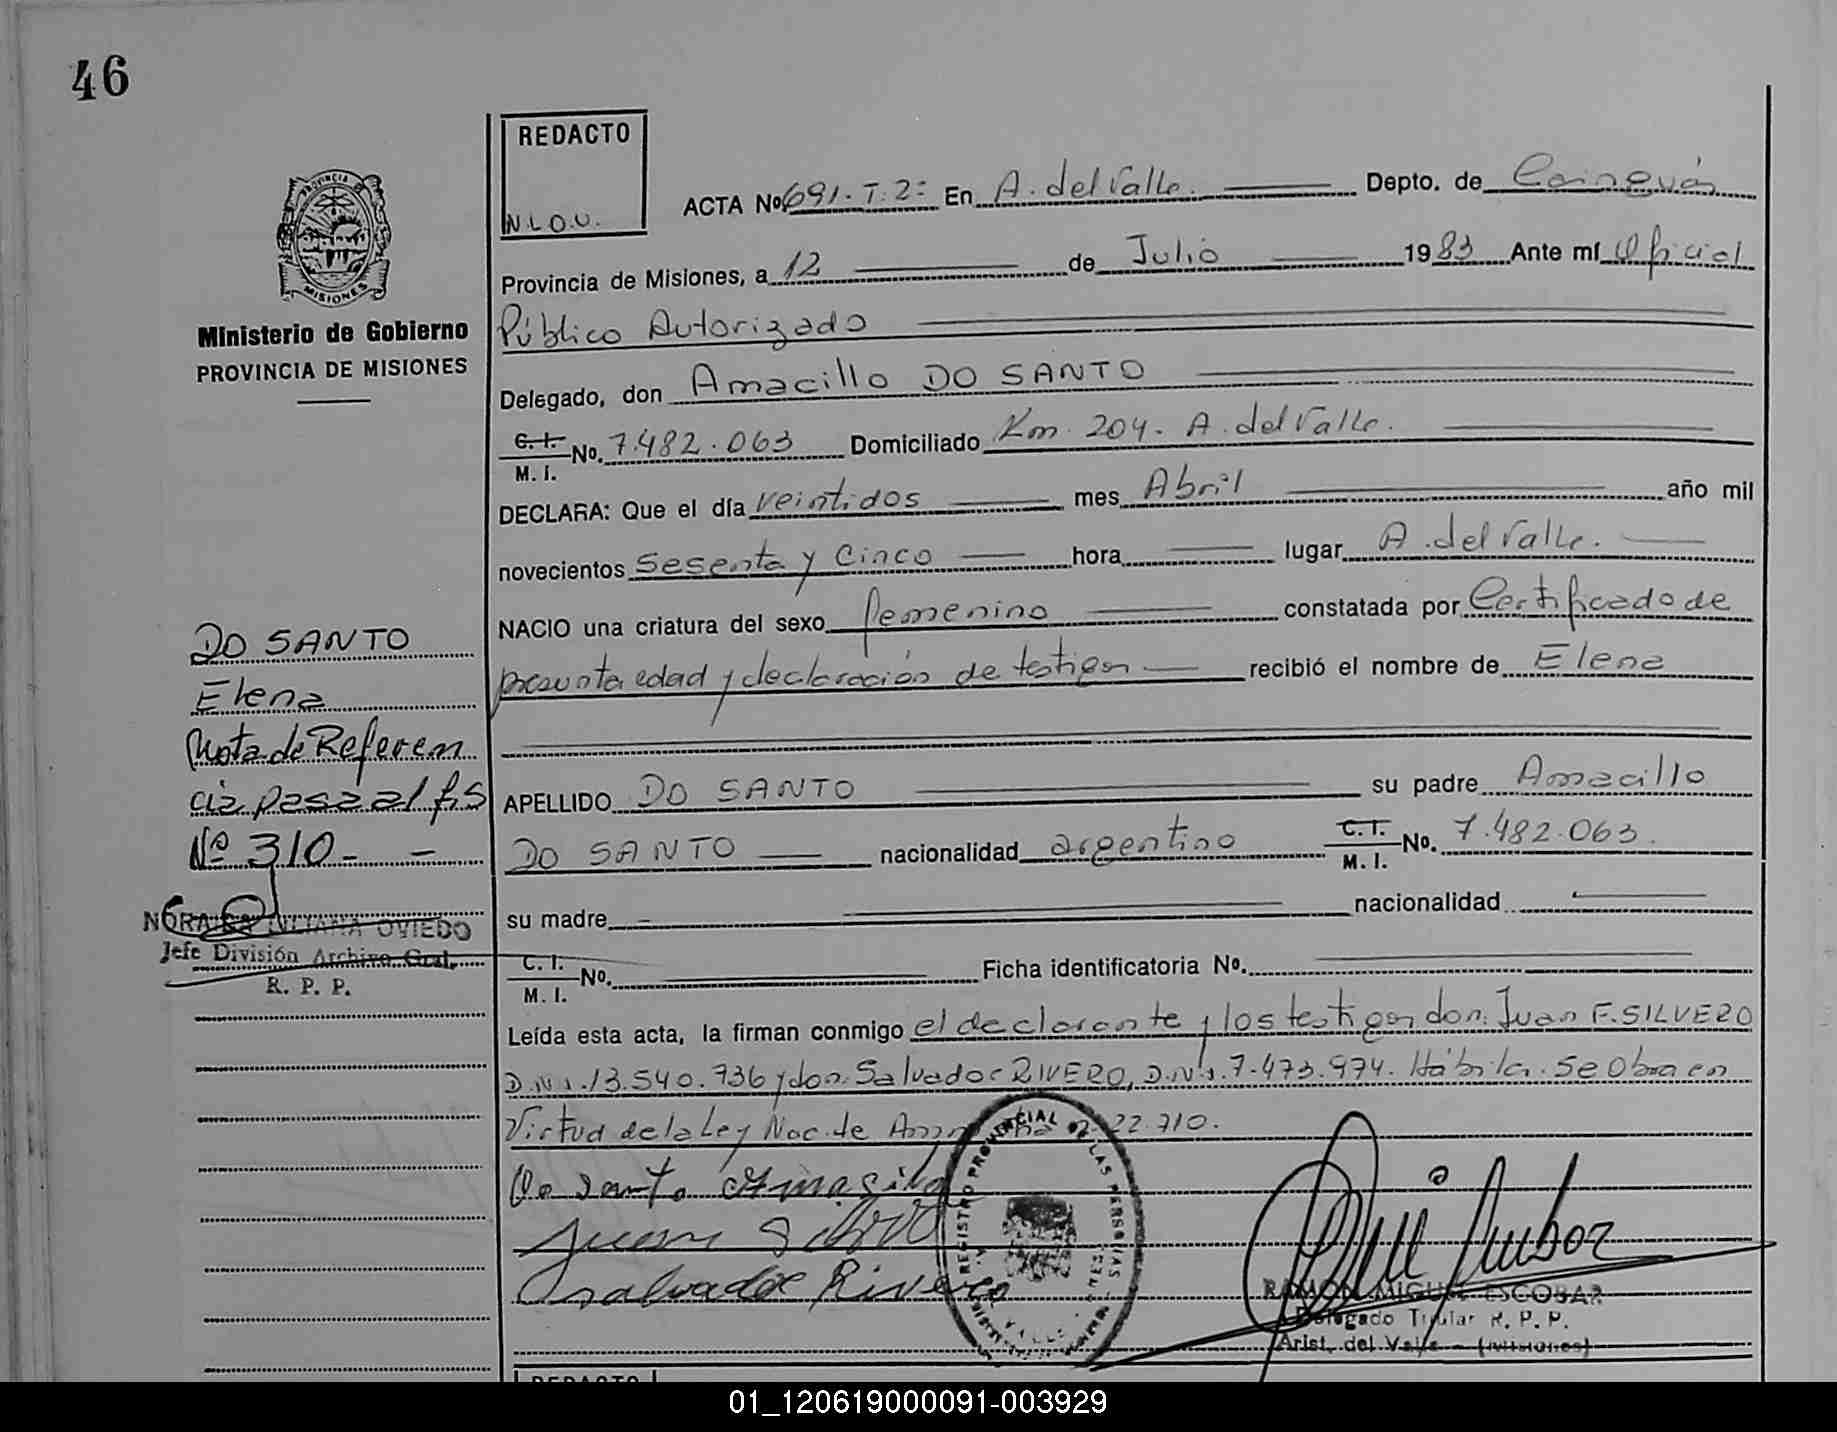 46
REDACTO
N.L.O.U.
ACTA No 691. T. 2= En A. del Valle. Depto. de Cainguás
Provincia de Misiones, a 12 de Julio 1983 Ante mí Oficial
Público Autorizado
Delegado, don Amacillo DO SANTO
C. I. M. I. No. 7.482.063 Domiciliado Km. 204. A. del Valle.
DECLARA: Que el día veintidos mes Abril año mil
novecientos sesenta y cinco hora lugar A. del Valle.
NACIO una criatura del sexo femenino constatada por Certificado de
presunta edad y declaración de testigos recibió el nombre de Elena
APELLIDO DO SANTO su padre Amacillo
DO SANTO nacionalidad argentino C. I. M. I. No. 7.482.063.
su madre nacionalidad
C. I. M. I. No. Ficha identificatoria No.
Leída esta acta, la firman conmigo el declarante y los testigos don: Juan F. SILVERO
D.N.I. 13.540.736 y don: Salvador RIVERO, D.N.I. 7.473.974. Hábiles. Se Obra en
Virtud de la Ley Nac. de 22.710.
Do Santo Amasilo
Juan Silvero
Salvador Rivero
REGISTRO PROVINCIAL DE LAS PERSONAS
RAMON MIGUEL ESCOBAR
Delegado Titular R. P. P.
Arist. del Valle - (Misiones)
PROVINCIA
MISIONES
Ministerio de Gobierno
PROVINCIA DE MISIONES
DO SANTO
Elena
Nota de Referen
cia pasa al fs
Nº 310-
NORA LILIANA OVIEDO
Jefe División Archivo Gral.
R. P. P.
REDACTO
01_120619000091-003929